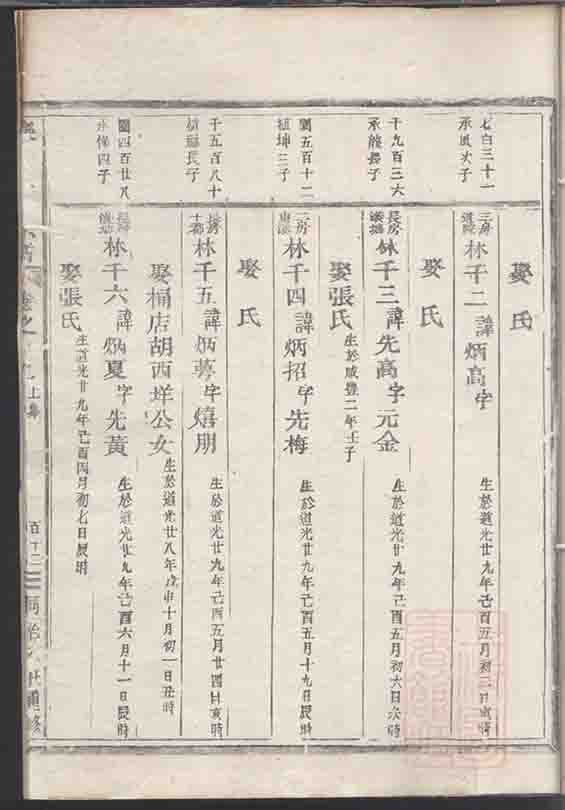 娶氏
七百三十一
承 次子
三房
林千二諱炳高字
生於道光廿九年己酉五月初三日亥時
娶氏
千九百三六
承 子
長房
林千三諱先高字元金
生於道光廿九年己酉五月初六日 時
娶張氏
生於咸豐二年壬子
闕五百十二
坤三子
二房
林千四諱炳招字先梅
生於道光廿九年己酉五月十九日辰時
娶氏
千五百八十
長子
長房
林千五諱炳 字熺朋
生於道光廿九年己酉五月廿四日亥時
娶桶店胡西垟公女
生於道光廿八年戊申十月初一日丑時
闕四百廿八
承 四子
長房
林千六諱炳夏字先黃
生於道光廿九年己酉六月十一日辰時
娶張氏
生道光廿九年己酉四月初七日辰時
卷之 上集
百十二
同治 重修